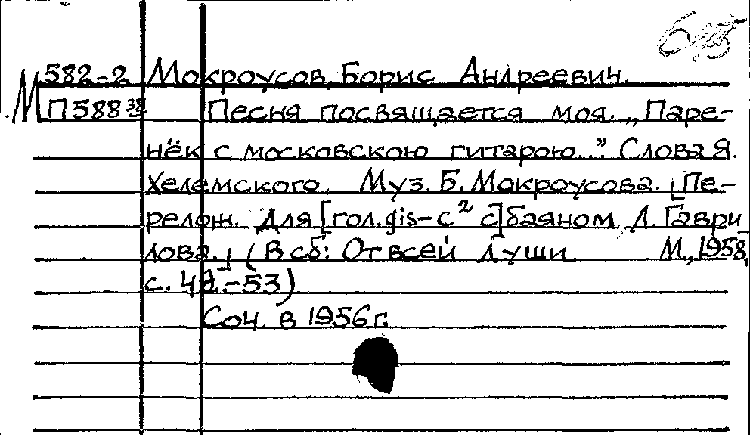 582-2 Мокроусов, Борис Андреевич.
М П588 Песня посвящается моя. „Паре-
нёк с московскою гитарою..." Слова Я.
Хелемского. Муз. Б. Мокроусова. [Пе-
релож. для [гол. gis-c² с] баяном А. Гаври
лова.] (В сб: От всей души М., 1958,
с. -53)
Соч. в 1956 г.